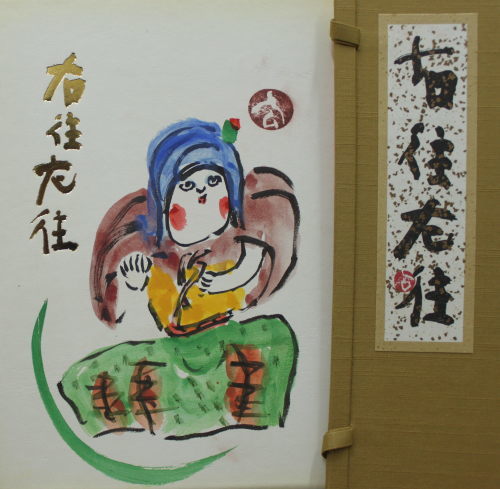 右往左往
右往左往